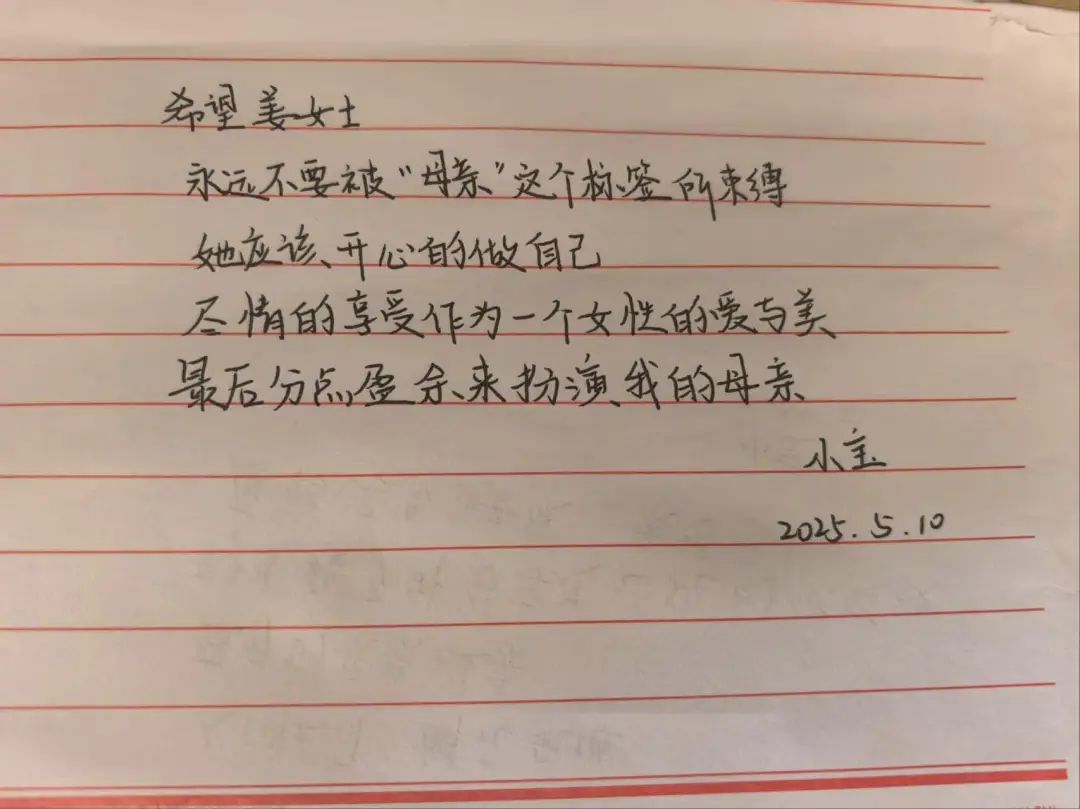 希望姜女士
永远不要被“母亲”这个标签所束缚
她应该、开心的做自己
尽情的享受作为一个女性的爱与美
最后分点盈余来扮演我的母亲
小宝
2025.5.10